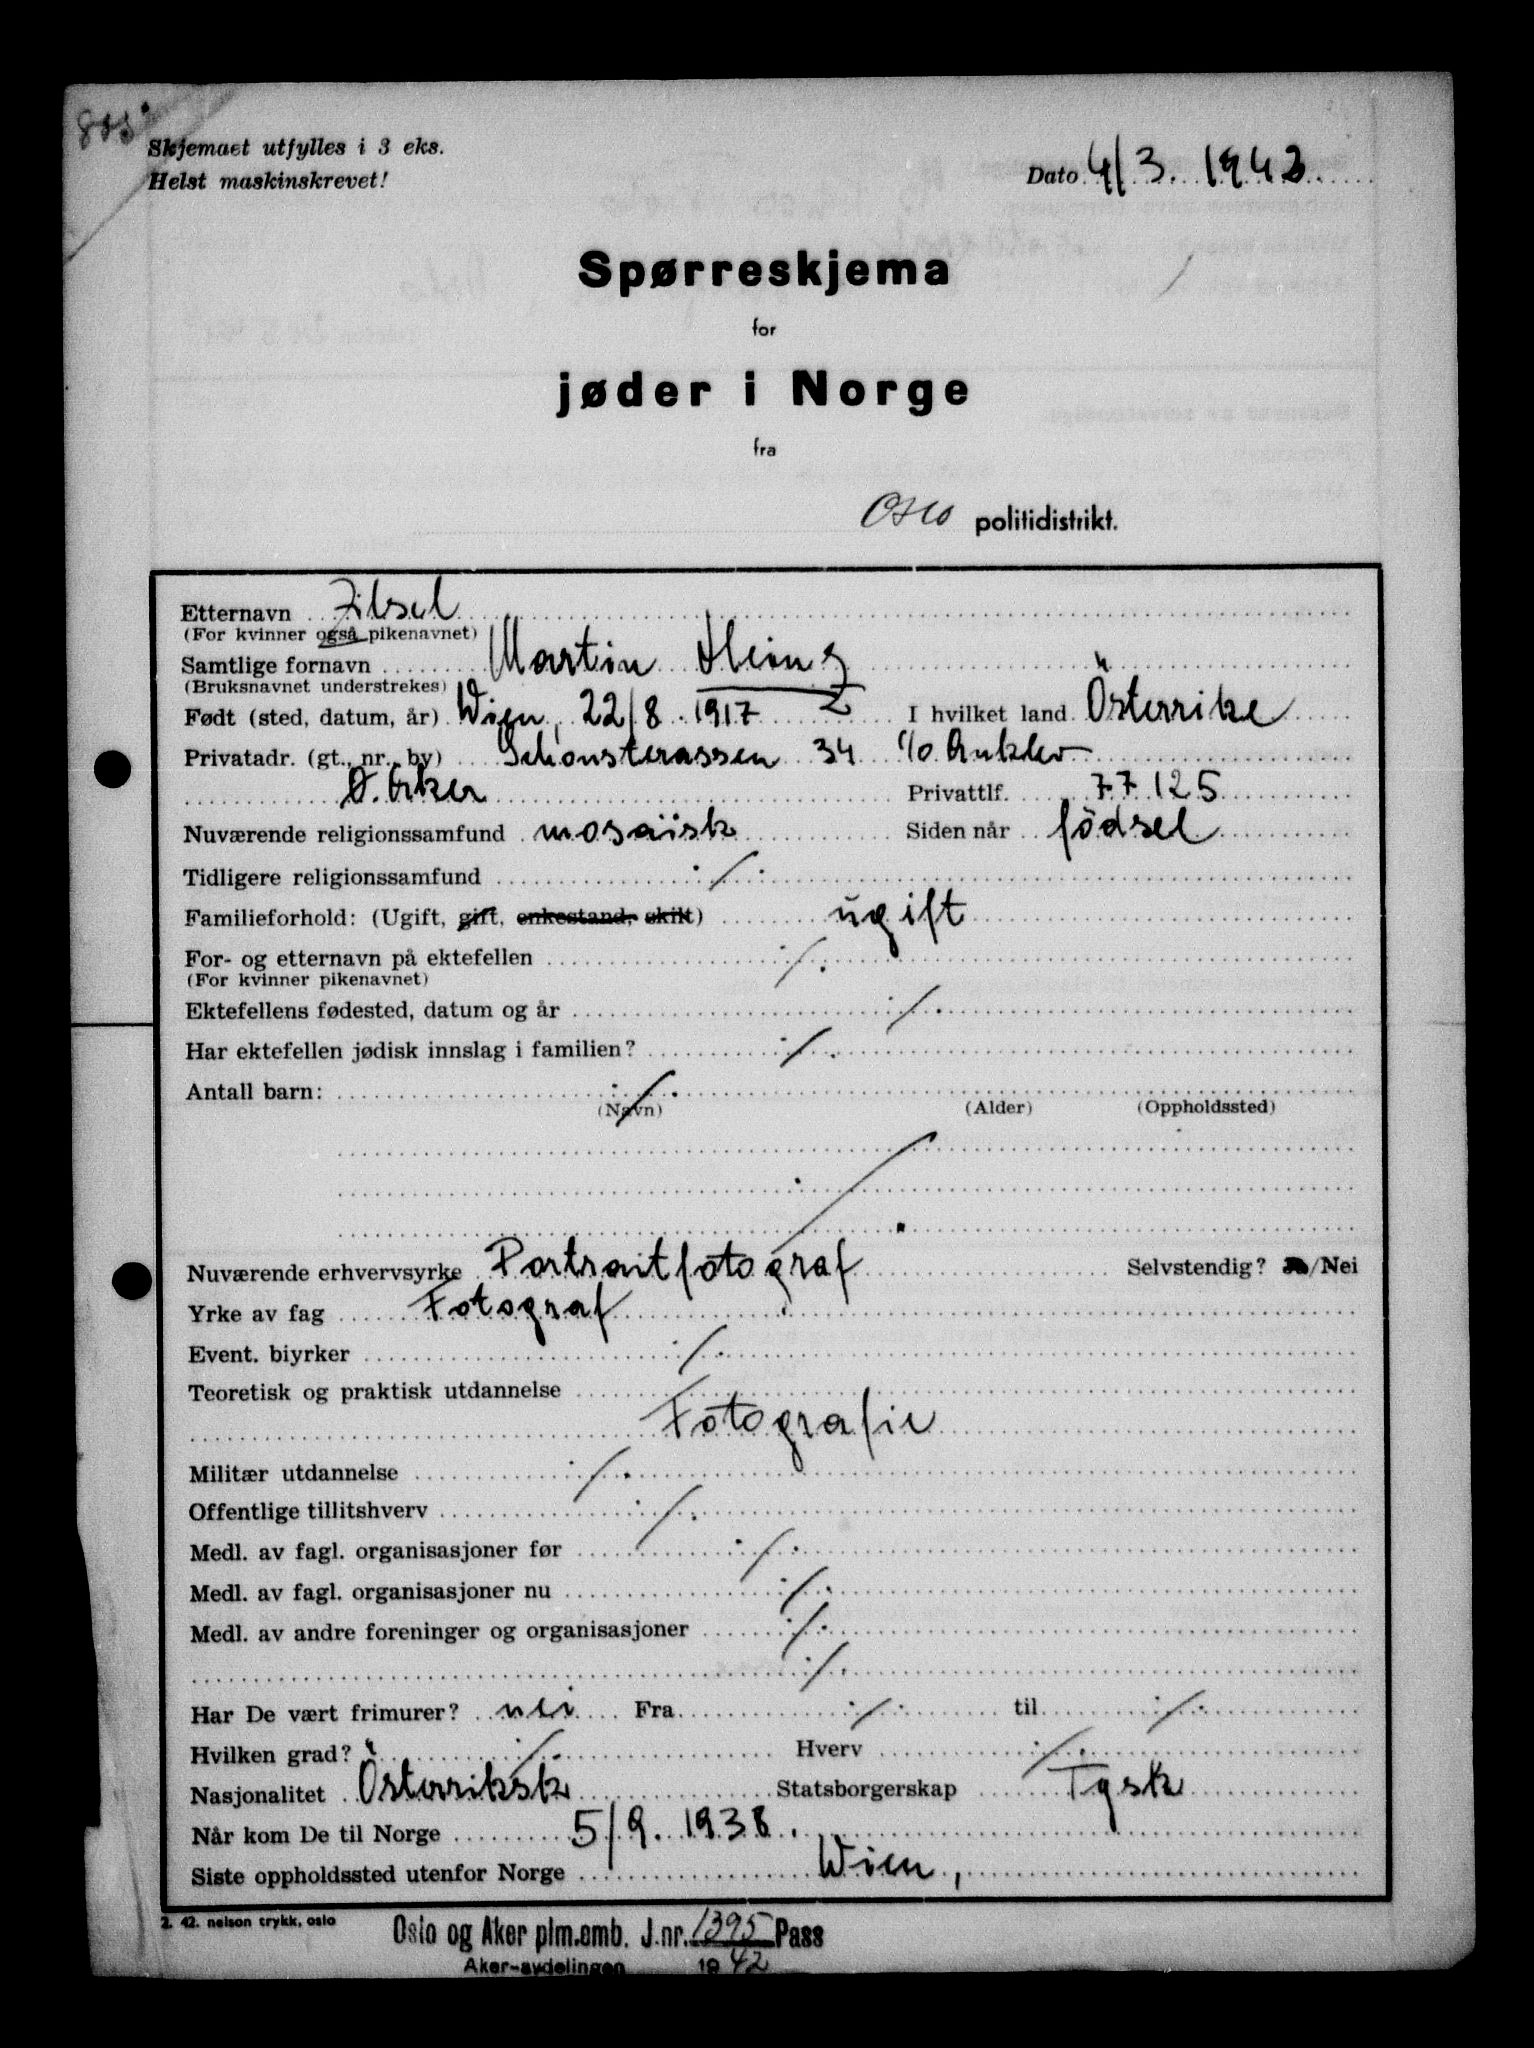 Skjemaet utfylles i 3 eks.
Helst maskinskrevet!
Dato 4/3. 1942.
Spørreskjema
for
jøder i Norge
fra
Oslo politidistrikt.
Etternavn Zilsel
(For kvinner også pikenavnet)
Samtlige fornavn Martin Heinz
(Bruksnavnet understrekes)
Født (sted, datum, år) Wien, 22/8. 1917 I hvilket land Österrike
Privatadr. (gt., nr., by) 34 c/o
Ø. Aker Privattlf. 77125
Nuværende religionssamfund mosaisk Siden når födsel
Tidligere religionssamfund ./.
Familieforhold: (Ugift, gift, enkestand, skilt) ugift
For- og etternavn på ektefellen ./.
(For kvinner pikenavnet)
Ektefellens fødested, datum og år ./.
Har ektefellen jødisk innslag i familien? ./.
Antall barn: ./.
(Navn) (Alder) (Oppholdssted)
./.
Nuværende erhvervsyrke Portraitfotograf Selvstendig? Ja/Nei
Yrke av fag Fotograf
Event. biyrker ./.
Teoretisk og praktisk utdannelse
Fotografie
Militær utdannelse ./.
Offentlige tillitshverv ./.
Medl. av fagl. organisasjoner før ./.
Medl. av fagl. organisasjoner nu ./.
Medl. av andre foreninger og organisasjoner ./.
./.
Har De vært frimurer? nei Fra ./. til ./.
Hvilken grad? ./. Hverv ./.
Nasjonalitet Österriksk Statsborgerskap Tysk
Når kom De til Norge 5/9. 1938.
Siste oppholdssted utenfor Norge Wien,
2. 42. nelson trykk, oslo
Oslo og Aker plm.emb. J.nr. 1395 Pass
Aker-avdelingen 1942